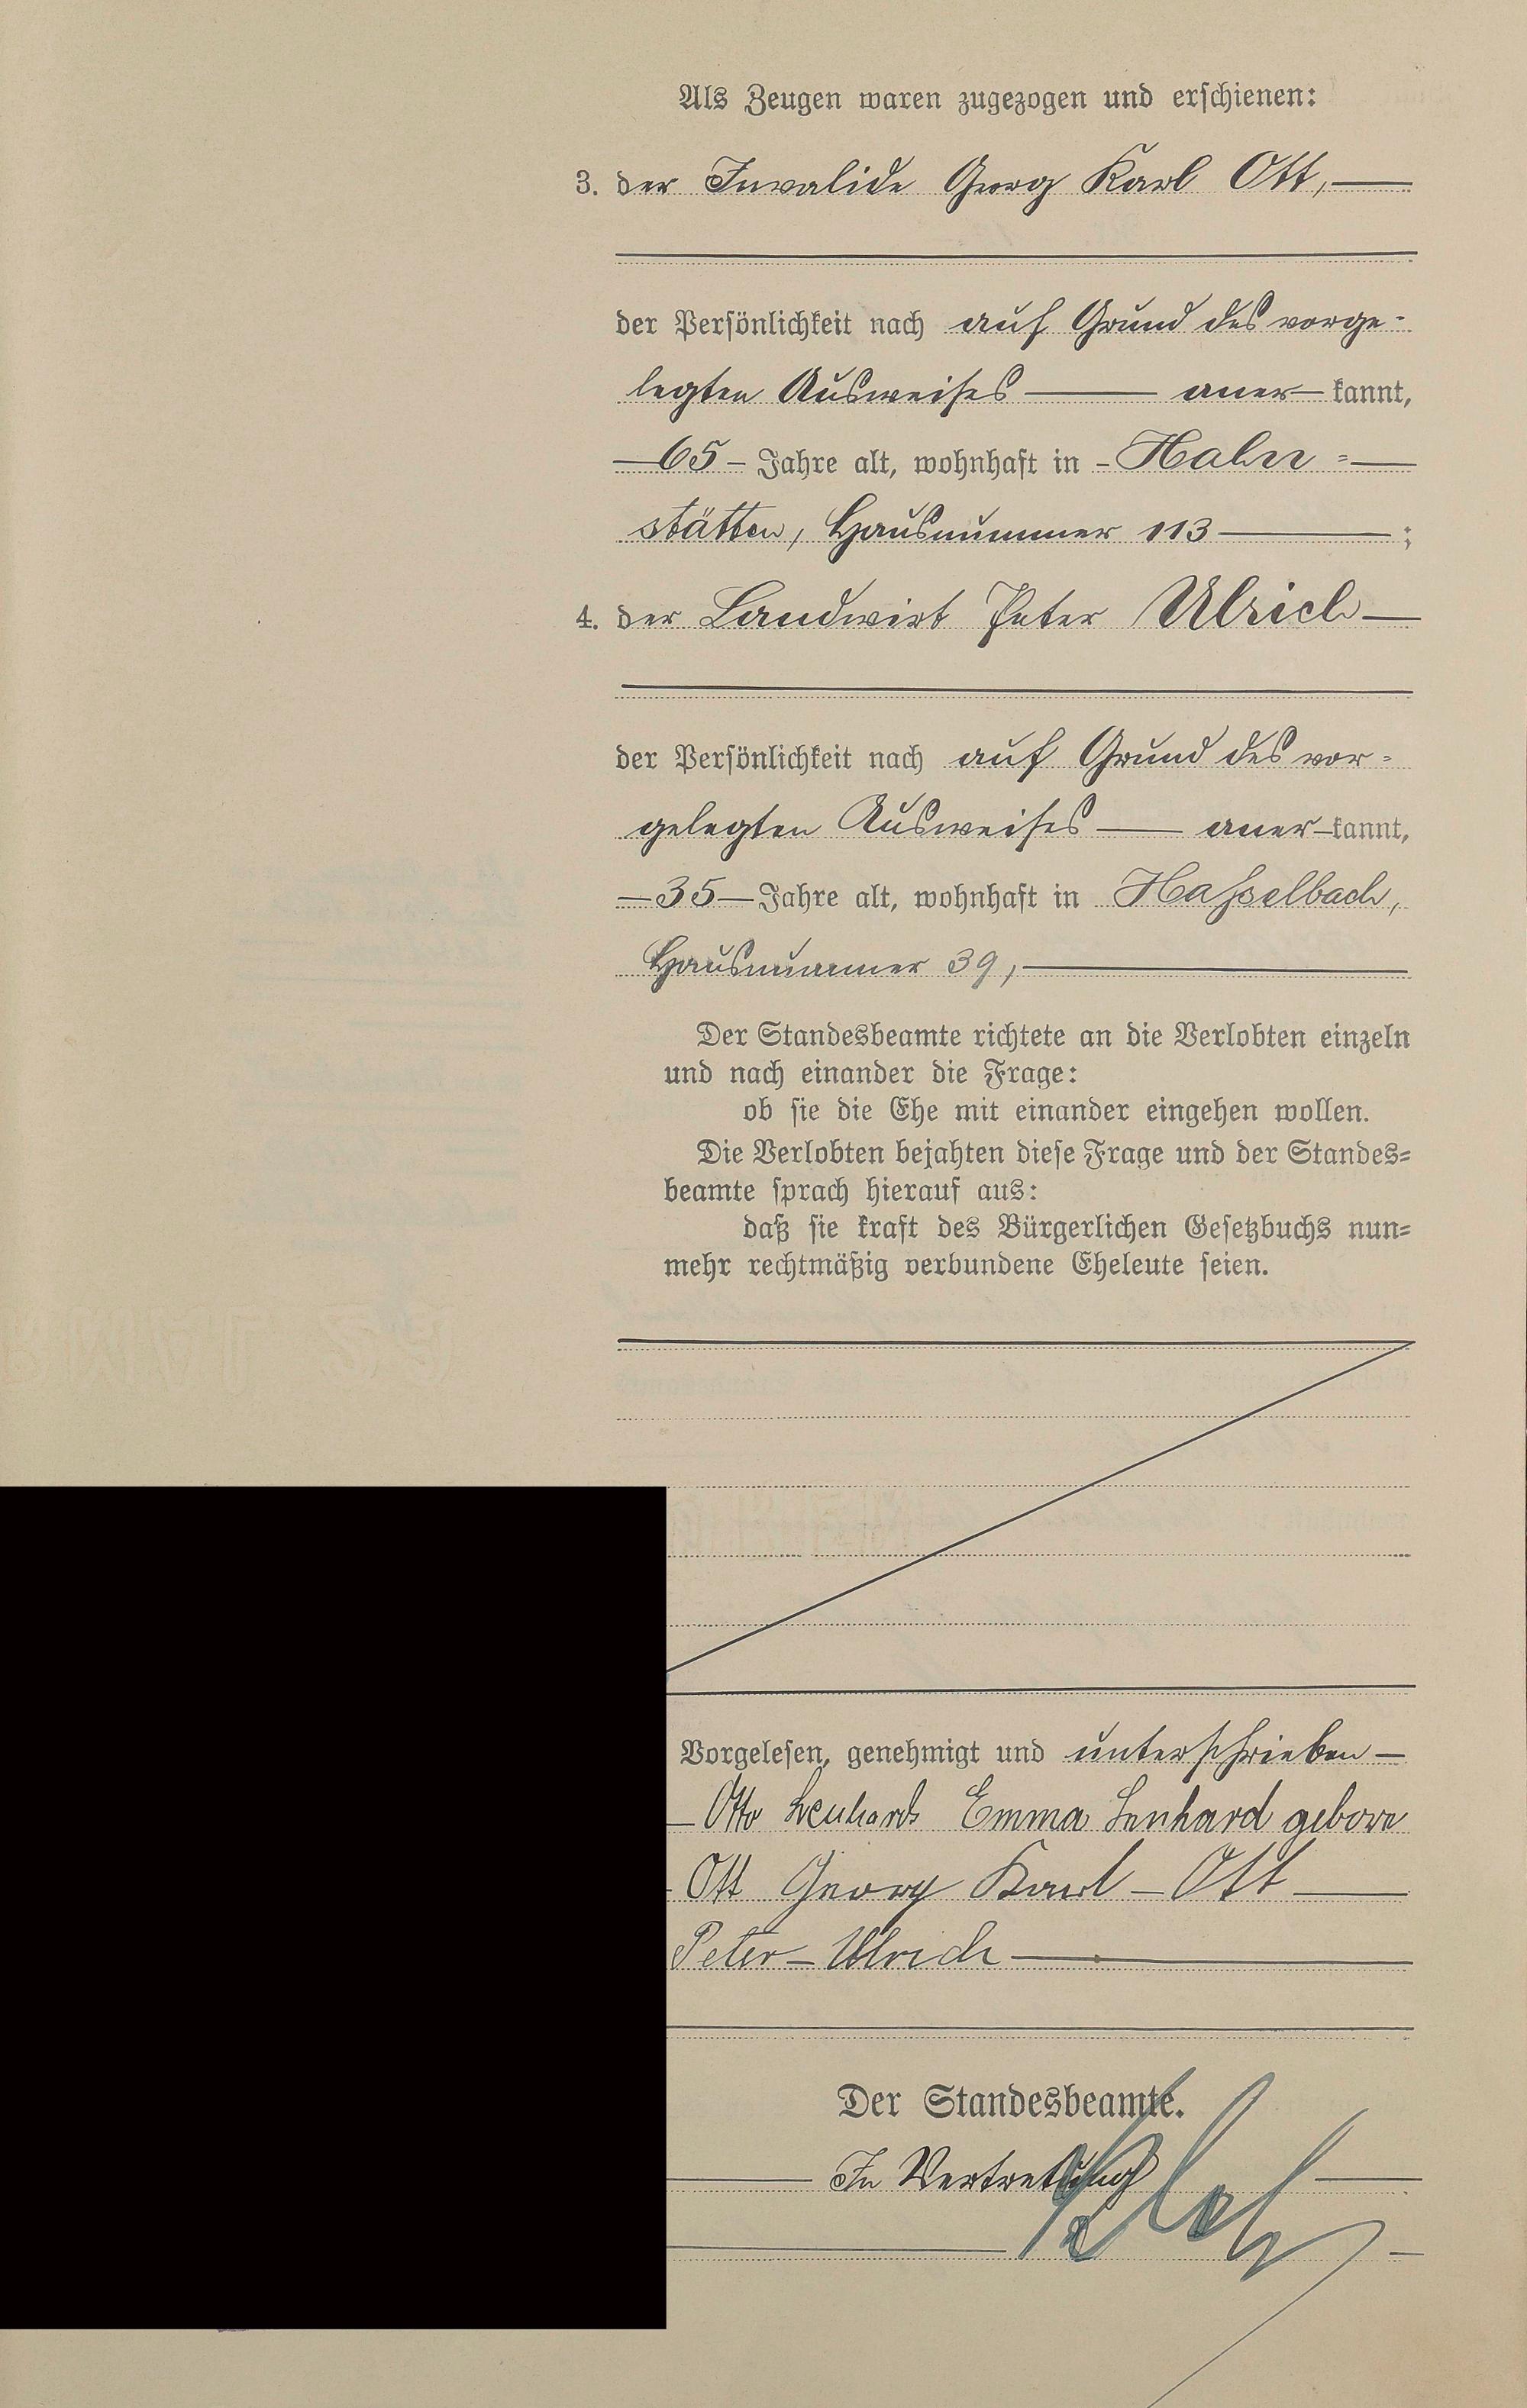 Als Zeugen waren zugezogen und erschienen:
3. der Invalide Georg Karl Ott,
der Persönlichkeit nach auf Grund des vorge-
legten Ausweises aner kannt,
65 Jahre alt, wohnhaft in Hahn=
stätten, Hausnummer 113 ;
4. der Landwirt Peter Ulrich
der Persönlichkeit nach auf Grund des vor=
gelegten Ausweises aner kannt,
35 Jahre alt, wohnhaft in Hasselbach,
Hausnummer 39,
Der Standesbeamte richtete an die Verlobten einzeln
und nach einander die Frage:
ob sie die Ehe mit einander eingehen wollen.
Die Verlobten bejahten diese Frage und der Standes=
beamte sprach hierauf aus:
daß sie kraft des Bürgerlichen Gesetzbuchs nun=
mehr rechtmäßig verbundene Eheleute seien.
Vorgelesen, genehmigt und unterschrieben
Otto Lenhard Emma Lenhard geborn
Ott Georg Karl Ott
Peter Ulrich
Der Standesbeamte.
In Vertretung